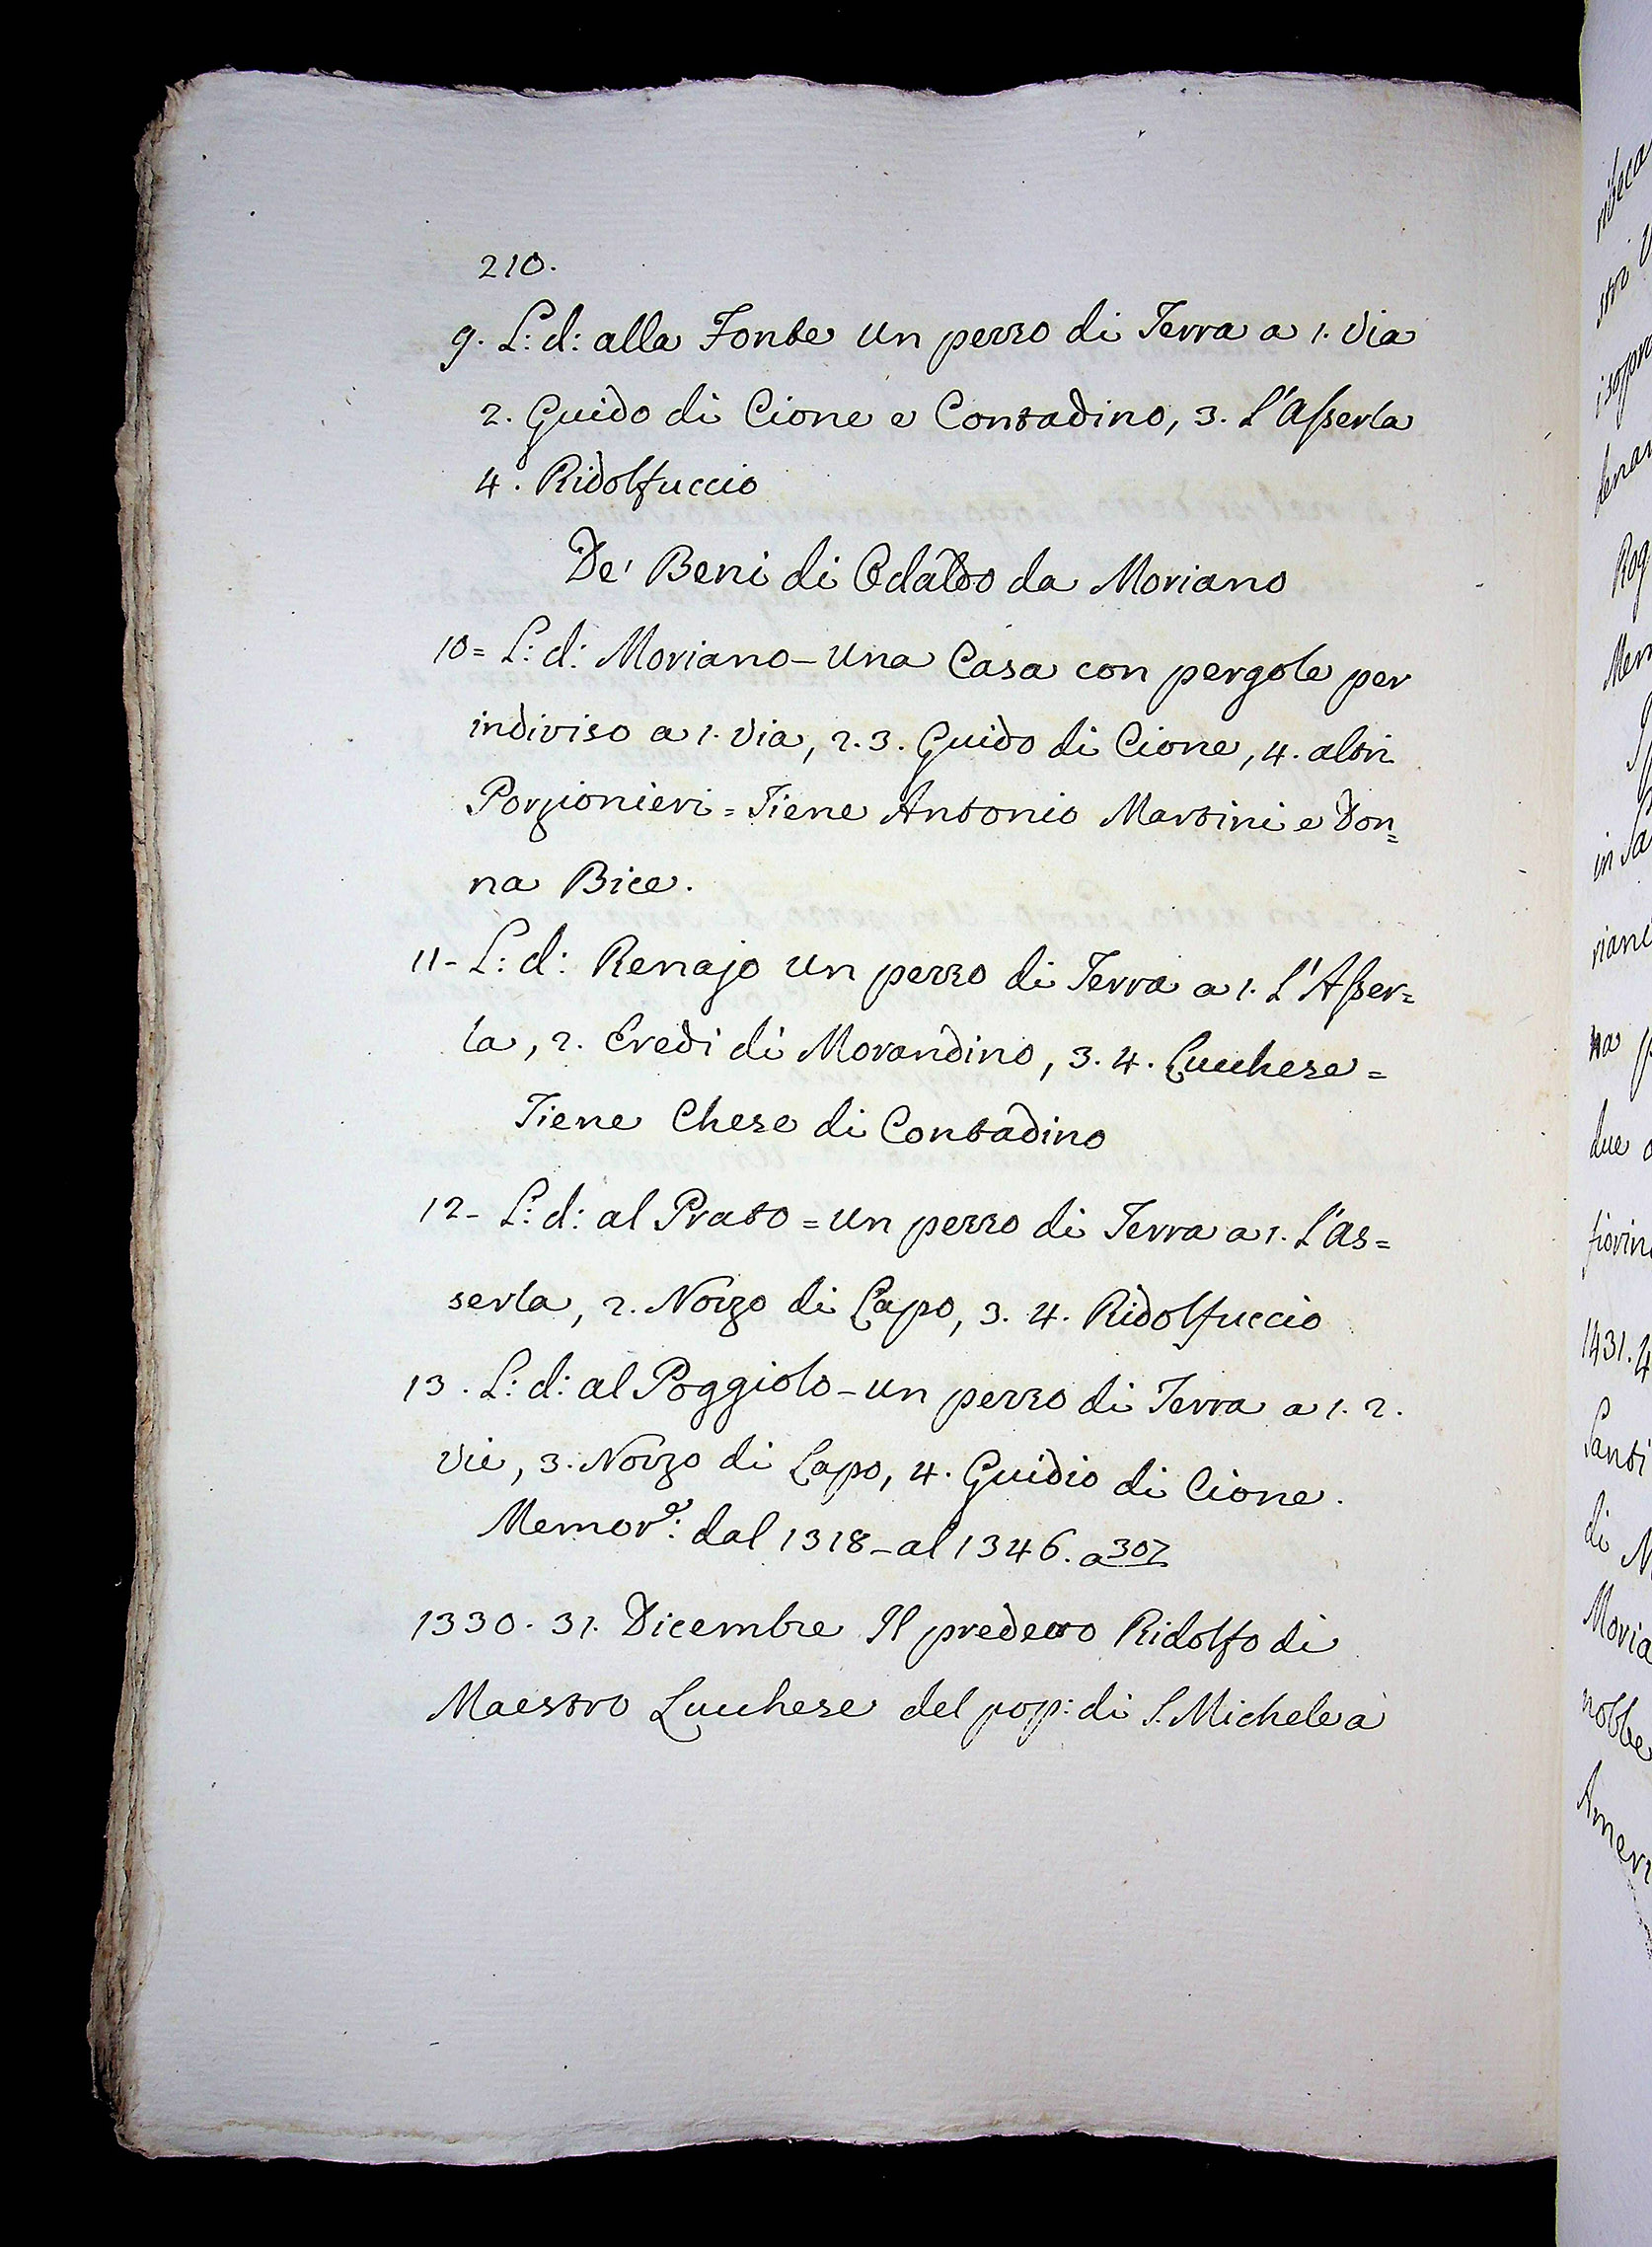 210.
9. L: d: alla Fonte un pezzo di Terra a 1. Via
2. Guido di Cione e Contadino, 3. L'Asserla
4. Ridolfuccio
De' Beni di Odaldo da Moriano
10= L: d: Moriano – Una Casa con pergole per
indiviso a 1. Via, 2. 3. Guido di Cione, 4. altri
Porzionieri = Tiene Antonio Martini e Don=
na Bice.
11- L: d: Renajo un pezzo di Terra a 1. L'Asser=
la, 2. Eredi di Morandino, 3. 4. Lucchese =
Tiene Chese di Contadino
12- L: d: al Prato = un pezzo di Terra a 1. L'As=
serla, 2. Nozzo di Lapo, 3. 4. Ridolfuccio
13. L: d: al Poggiolo – un pezzo di Terra a 1. 2.
Vie, 3. Nozzo di Lapo, 4. Guidio di Cione.
Memor.e: dal 1318 – al 1346. a 307
1330. 31. Dicembre Il predetto Ridolfo di
Maestro Lucchese del pop: di S. Michele a
due
1431.
di